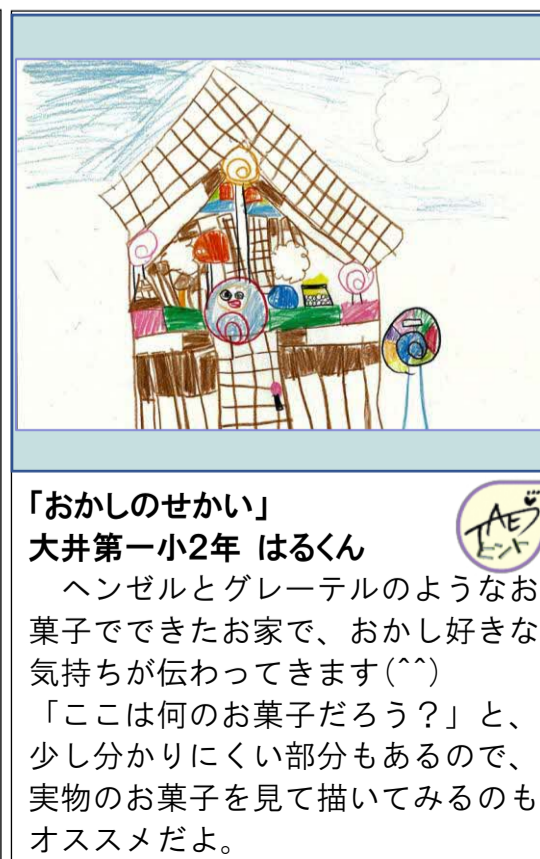 「おかしのせかい」
大井第一小2年 はるくん
TAEラ
ヒント
ヘンゼルとグレーテルのようなお
菓子でできたお家で、おかし好きな
気持ちが伝わってきます(^^)
「ここは何のお菓子だろう?」と、
少し分かりにくい部分もあるので、
実物のお菓子を見て描いてみるのも
オススメだよ。